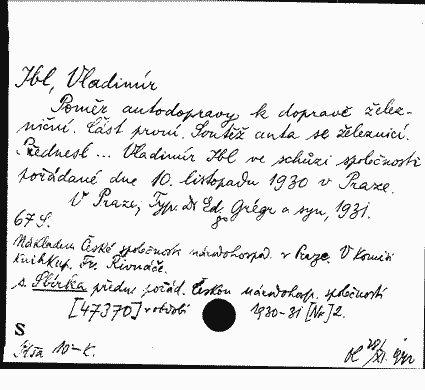 Ibl, Vladimír
Poměr autodopravy k dopravě želez-
niční. Část první. Soutěž auta se železnicí.
Přednesl ... Vladimír Ibl ve schůzi společnosti
pořádané dne 10. listopadu 1930 v Praze.
V Praze, Typ. Dr Ed. Grégr a syn, 1931.
67 S.
Nákladem České společnosti národohospod. v Praze. V komisi
knihkup. Fr. Řivnáče.
s. Sbírka předn. pořád. Českou národohosp. společností
[47370] v období 1930-31 [Nr] 2.
S
10-K.